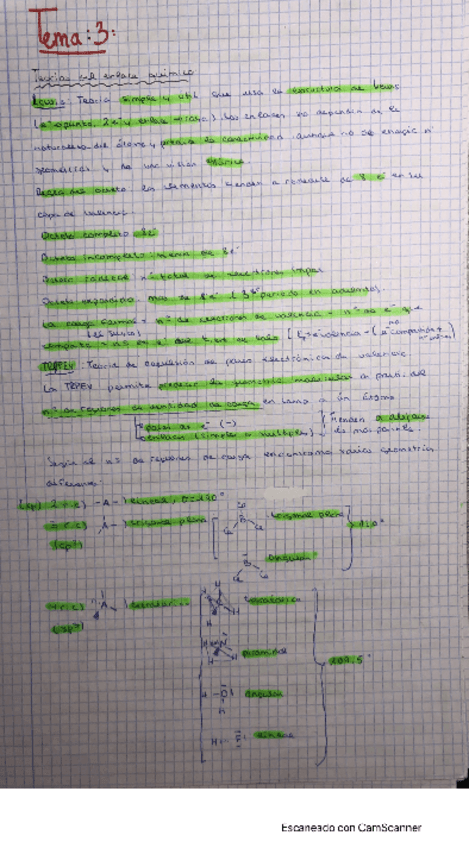 Tema:3:
Teorías del enlace químico
Lewis: Teoría simple y útil que usa la estructura de Lewis
(e⁻=punto, 2e⁻ y enlace = raya). Los enlaces no dependen de la
naturaleza del átomo y aunque no da energía ni
geometría y da una visión
Regla del octeto: los elementos tienden a rodearse de 8 e⁻ en su
capa de valencia.
Octeto completo 8e⁻
Octeto incompleto: menos de 8e⁻
Octeto radical: nº total de electrones impar
Octeto expandido: más de 8e⁻ (3er periodo en adelante).
La carga formal = nº de electrones de valencia - nº de e⁻ que
TRPEV: Teoría de repulsión de pares electrónicos de valencia.
La TRPEV permite predecir la geometría molecular a partir del
nº de regiones de densidad de carga en torno a un átomo
pares de e⁻ (-)
enlaces (simple o múltiples)
tienden a alejarse
Según el nº de regiones de carga encontramos varias geometrías
diferentes:
(sp) 2 r.c) -A- lineal, θ=180°
3 r.c) A- trigonal plana
(sp²)
trigonal plana
120°
angular
4 r.c) A tetraédrica
(sp³)
tetraédrica
piramidal
109,5°
angular
lineal
Escaneado con CamScanner